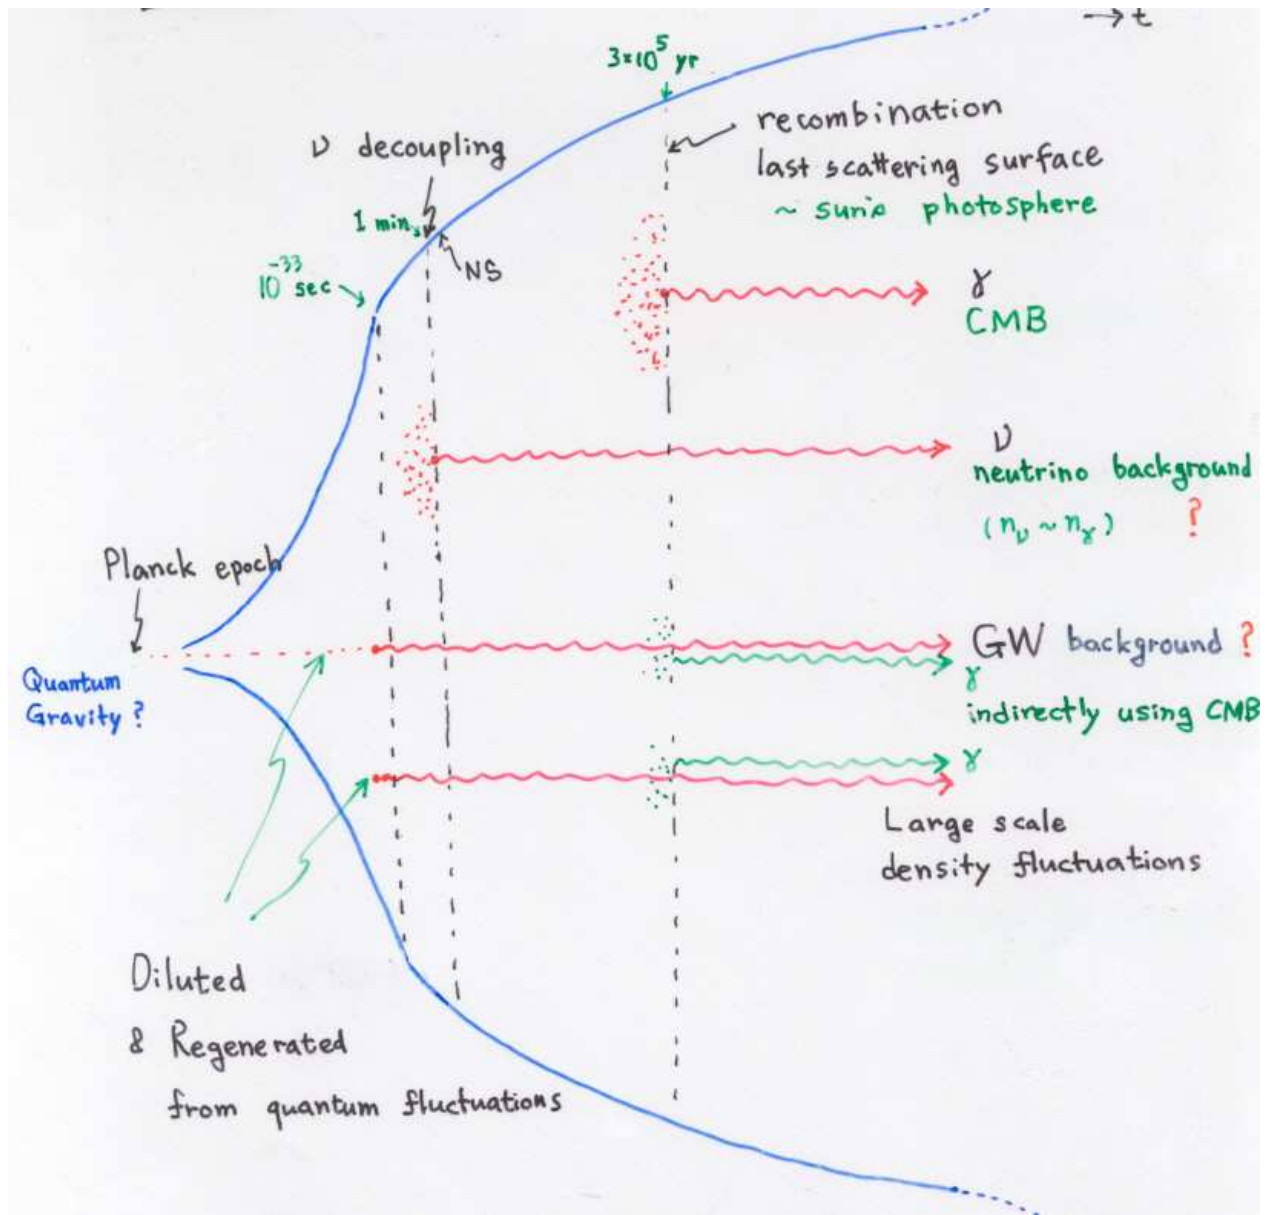 → t
3×10⁵ yr
ν decoupling
recombination
last scattering surface
~ sun's photosphere
1 min.
NS
10⁻³³ sec
γ
CMB
ν
neutrino background
(nν ~ nγ) ?
Planck epoch
Quantum
Gravity?
GW background ?
γ
indirectly using CMB
γ
Large scale
density fluctuations
Diluted
& Regenerated
from quantum fluctuations